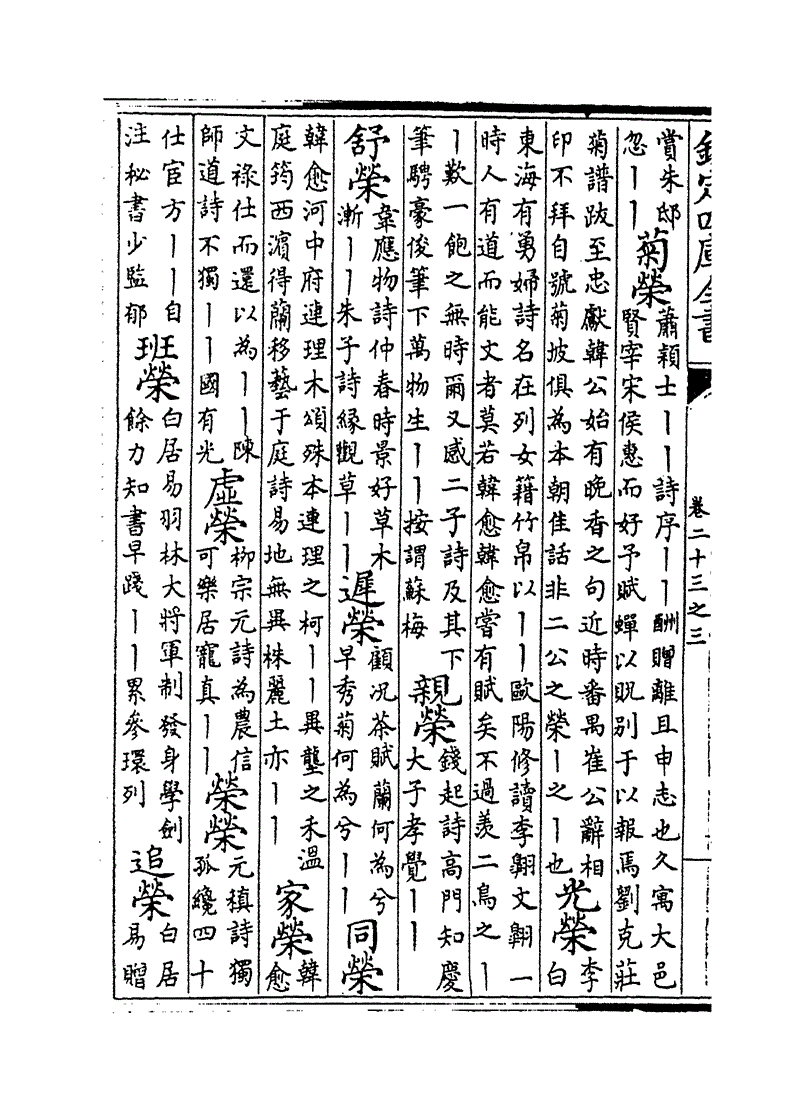 欽定四庫全書
卷二十三之三
賞朱邸
忽丨丨
菊榮
蕭穎士丨丨詩序丨丨酬贈離且申志也久寓大邑
賢宰宋侯惠而好予賦蟬以貺別于以報焉劉克莊
菊譜跋至忠獻韓公始有晚香之句近時番禺崔公辭相
印不拜自號菊坡俱為本朝佳話非二公之榮丨之丨也
光榮
李
白
東海有勇婦詩名在列女籍竹帛以丨丨歐陽修讀李翺文翺一
時人有道而能文者莫若韓愈韓愈嘗有賦矣不過羨二鳥之丨
丨歎一飽之無時爾又感二子詩及其下
筆騁豪俊筆下萬物生丨丨按謂蘇梅
親榮
錢起詩高門知慶
大子孝覺丨丨
舒榮
韋應物詩仲春時景好草木
漸丨丨朱子詩緣觀草丨丨
遲榮
顧况茶賦蘭何為兮
早秀菊何為兮丨丨
同榮
韓愈河中府連理木頌殊本連理之柯丨丨異壟之禾溫
庭筠西濱得蘭移藝于庭詩易地無異株麗土亦丨丨
家榮
韓
愈
文祿仕而還以為丨丨陳
師道詩不獨丨丨國有光
虛榮
柳宗元詩為農信
可樂居寵真丨丨
榮榮
元稹詩獨
孤纔四十
仕宦方丨丨自
注秘書少監郁
班榮
白居易羽林大將軍制發身學劍
餘力知書早踐丨丨累參環列
追榮
白居
易贈